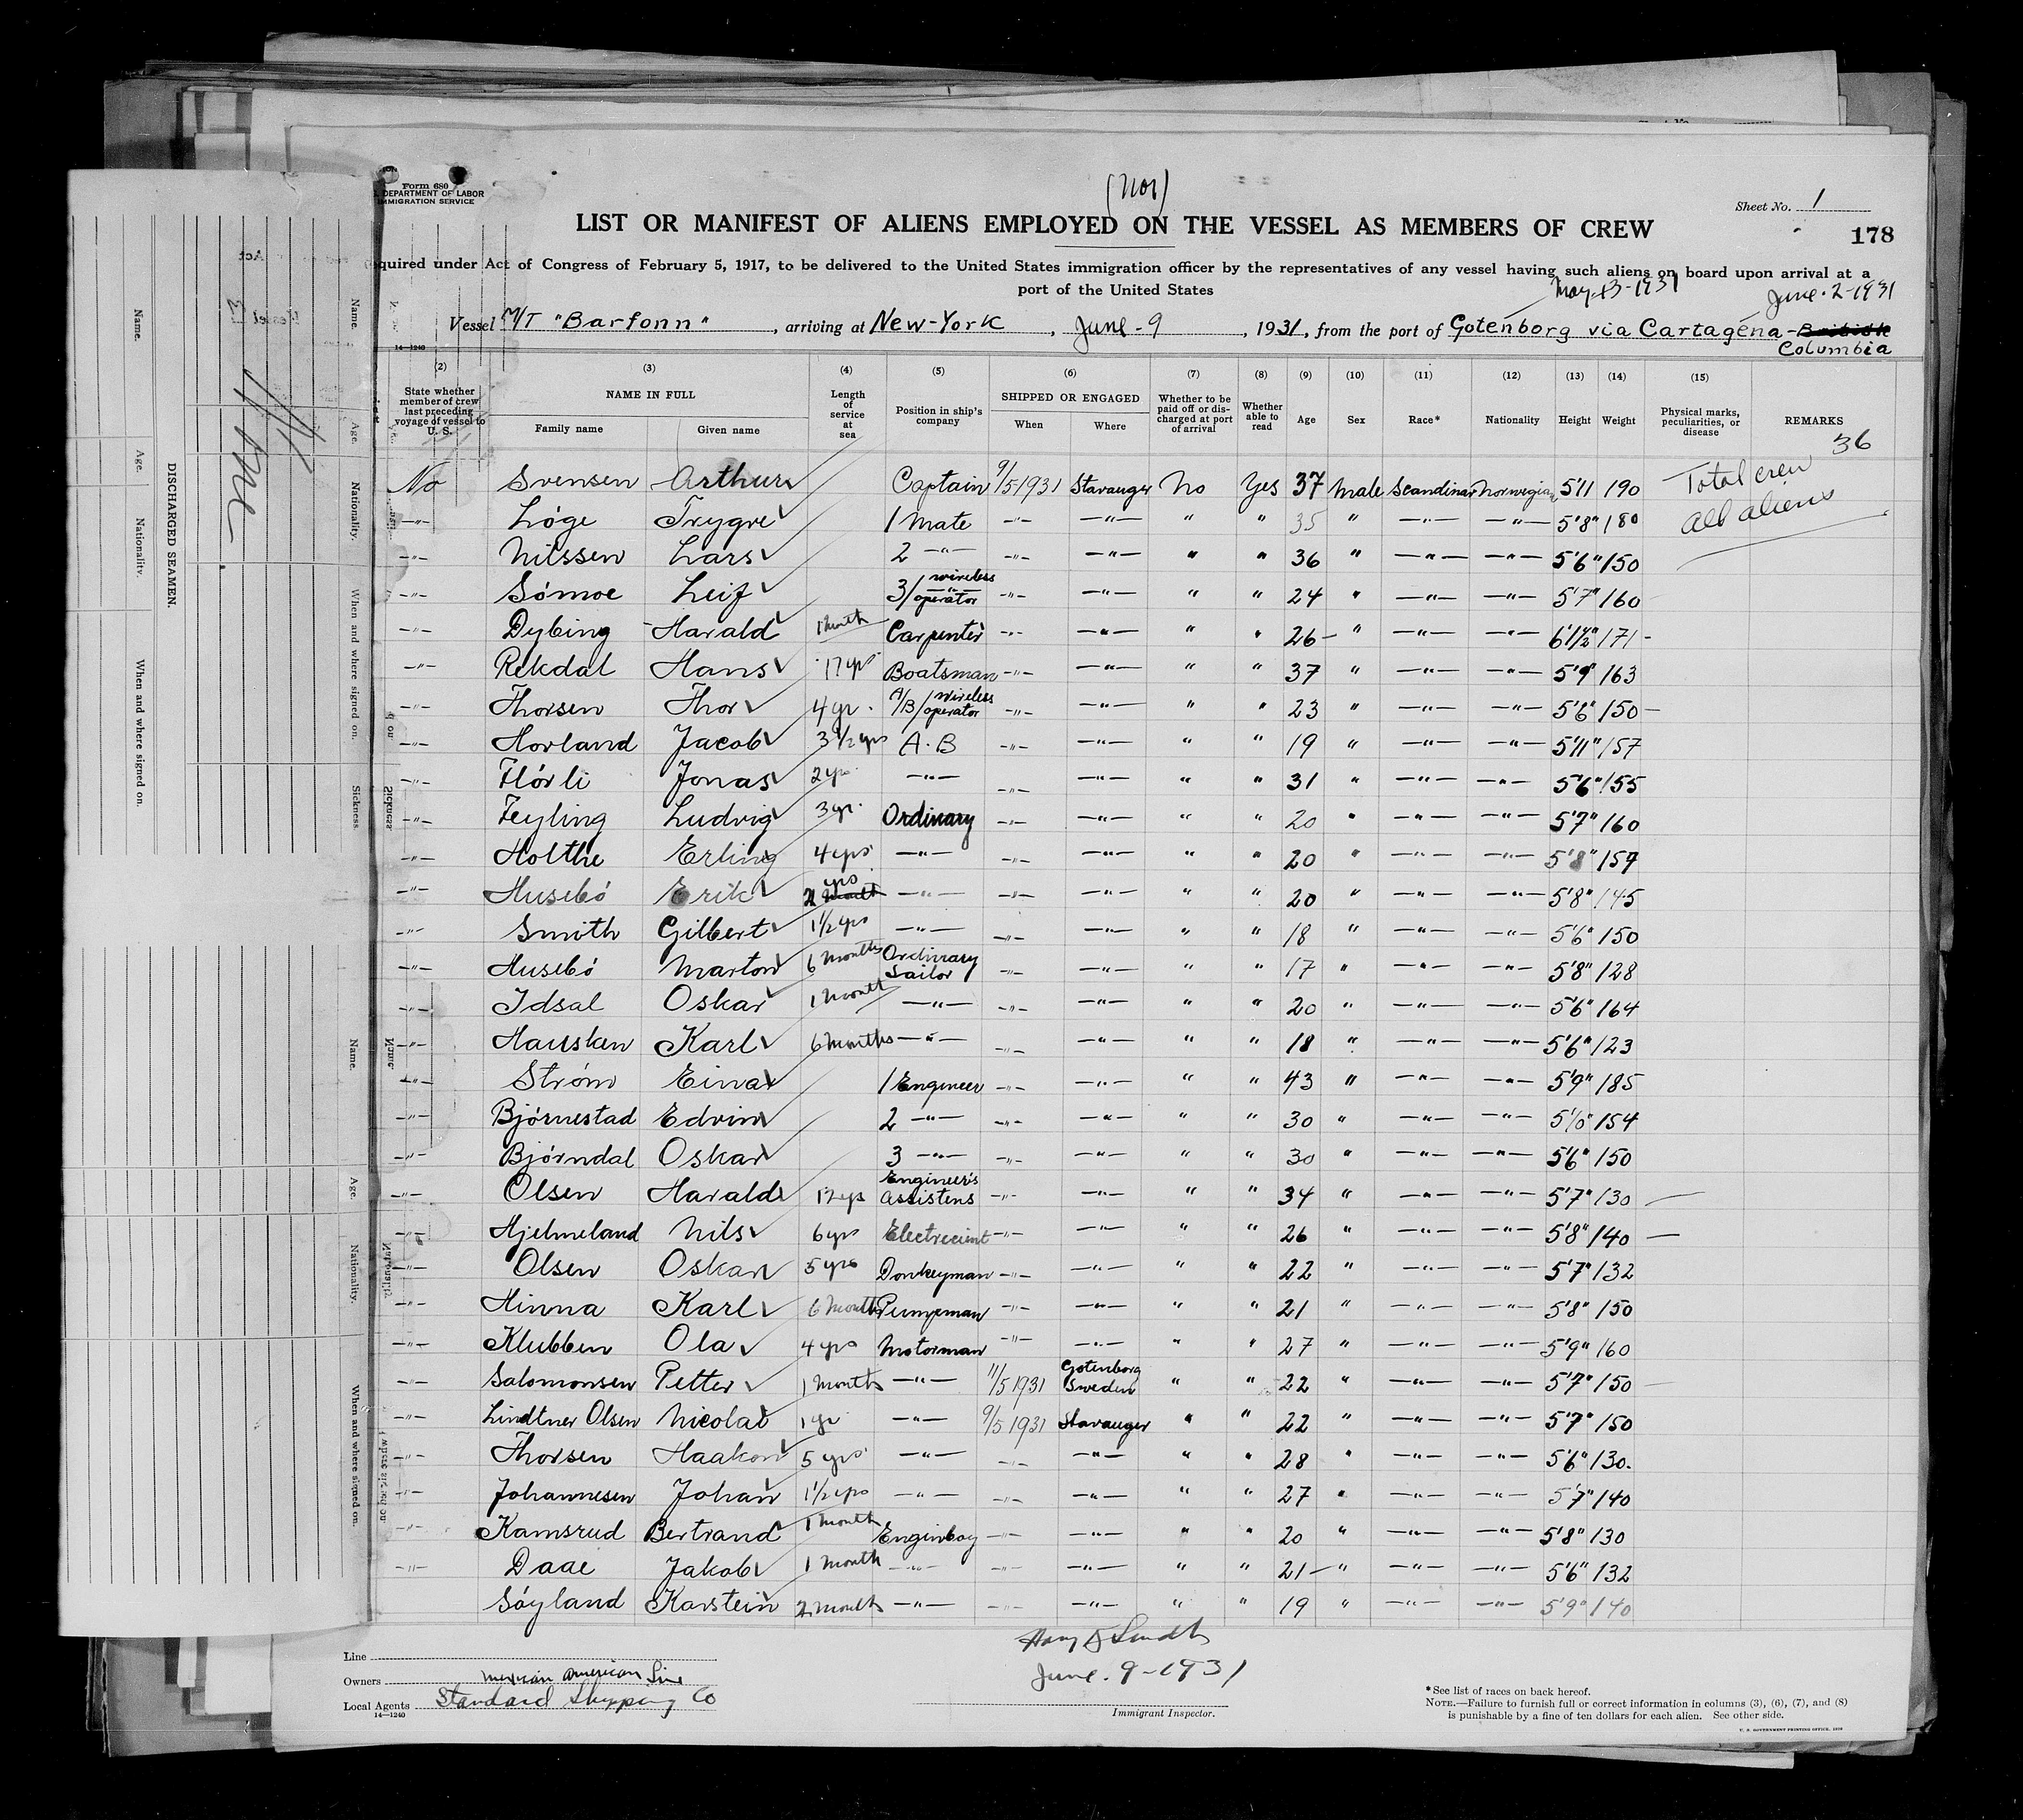 Form 680
DEPARTMENT OF LABOR
IMMIGRATION SERVICE
(Nor)
Sheet No. 1
LIST OR MANIFEST OF ALIENS EMPLOYED ON THE VESSEL AS MEMBERS OF CREW
178
quired under Act of Congress of February 5, 1917, to be delivered to the United States immigration officer by the representatives of any vessel having such aliens on board upon arrival at a
port of the United States
May-13-1931 June-2-1931
Vessel M/T "Barfonn", arriving at New-York, June-9, 1931, from the port of Gotenborg via Cartagena-British
Columbia
14—1240
(2) (3) (4) (5) (6) (7) (8) (9) (10) (11) (12) (13) (14) (15)
State whether member of crew last preceding voyage of vessel to U. S. NAME IN FULL Family name Given name Length of service at sea Position in ship's company SHIPPED OR ENGAGED When Where Whether to be paid off or discharged at port of arrival Whether able to read Age Sex Race* Nationality Height Weight Physical marks, peculiarities, or disease REMARKS
36
Total crew
All aliens
No Svensen Arthur Captain 9/5 1931 Stavanger No Yes 37 Male Scandinav Norwegian 5'11 190
—"— Løge Trygve 1 Mate —"— —"— " " 35 " —"— —"— 5'8" 180
—"— Nilssen Lars 2 —"— —"— —"— " " 36 " —"— —"— 5'6" 150
—"— Sømoe Leif 3/ wireless —"— operator —"— —"— " " 24 " —"— —"— 5'7" 160
—"— Dybing Harald 1 Month Carpenter —"— —"— " " 26 " —"— —"— 6'1½" 171
—"— Rekdal Hans 17 yrs Boatsman —"— —"— " " 37 " —"— —"— 5'9" 163
—"— Thorsen Thor 4 yr. A/B/ wireless operator —"— —"— " " 23 " —"— —"— 5'6" 150
—"— Horland Jacob 3½ yrs A.B —"— —"— " " 19 " —"— —"— 5'11" 157
—"— Flórli Jonas 2 yrs —"— —"— —"— " " 31 " —"— —"— 5'6" 155
—"— Feyling Ludvig 3 yr. Ordinary —"— —"— " " 20 " —"— —"— 5'7" 160
—"— Holthe Erling 4 yrs —"— —"— —"— " " 20 " —"— —"— 5'8" 159
—"— Husebó Erik 2 yrs month —"— —"— —"— " " 20 " —"— —"— 5'8" 145
—"— Smith Gilbert 1½ yrs —"— —"— —"— " " 18 " —"— —"— 5'6" 150
—"— Husebó Marton 6 months Ordinary Sailor —"— —"— " " 17 " —"— —"— 5'8" 128
—"— Idsal Oskar 1 month —"— —"— —"— " " 20 " —"— —"— 5'6" 164
—"— Hausken Karl 6 months —"— —"— —"— " " 18 " —"— —"— 5'6" 123
—"— Strøm Einar 1 Engineer —"— —"— " " 43 " —"— —"— 5'9" 185
—"— Bjórnestad Edvin 2 —"— —"— —"— " " 30 " —"— —"— 154
—"— Bjórndal Oskar 3 —"— —"— —"— " " 30 " —"— —"— 5'6" 150
—"— Olsen Harald 12 yrs Engineer's assistens —"— —"— " " 34 " —"— —"— 5'7" 130
—"— Hjelmeland Nils 6 yrs Electrecient —"— —"— " " 26 " —"— —"— 5'8" 140
—"— Olsen Oskar 5 yrs Donkeyman —"— —"— " " 22 " —"— —"— 5'7" 132
—"— Hinna Karl 6 months Pumpman —"— —"— " " 21 " —"— —"— 5'8" 150
—"— Klubben Ola 4 yrs Motorman —"— —"— " " 27 " —"— —"— 5'9" 160
—"— Salomonsen Petter 1 Months —"— 11/5 1931 Gotenborg Sweden " " 22 " —"— —"— 5'7" 150
—"— Lindtner Olsen Nicolai 1 yr —"— 9/5 1931 Stavanger " " 22 " —"— —"— 5'7" 150
—"— Thorsen Haakon 5 yrs —"— —"— —"— " " 28 " —"— —"— 5'6" 130.
—"— Johannesen Johan 1½ yrs —"— —"— —"— " " 27 " —"— —"— 5'7" 140
—"— Kamsrud Bertrand 1 month Enginboy —"— —"— " " 20 " —"— —"— 5'8" 130
—"— Daae Jakob 1 month —"— —"— —"— " " 21 " —"— —"— 5'6" 132
—"— Sóyland Karstein 2 months —"— —"— —"— " " 19 " —"— —"— 5'9" 140
Line
Owners Mexican American Line
Local Agents Standard Shipping Co
14—1240
June. 9-1931
Immigrant Inspector.
*See list of races on back hereof.
NOTE.—Failure to furnish full or correct information in columns (3), (6), (7), and (8)
is punishable by a fine of ten dollars for each alien. See other side.
U. S. GOVERNMENT PRINTING OFFICE
DISCHARGED SEAMEN.
Name. Age. Nationality. When and where signed on.
Name. Age. Nationality. When and where signed on. Sickness.
Name. Age. Nationality. When and where signed on.